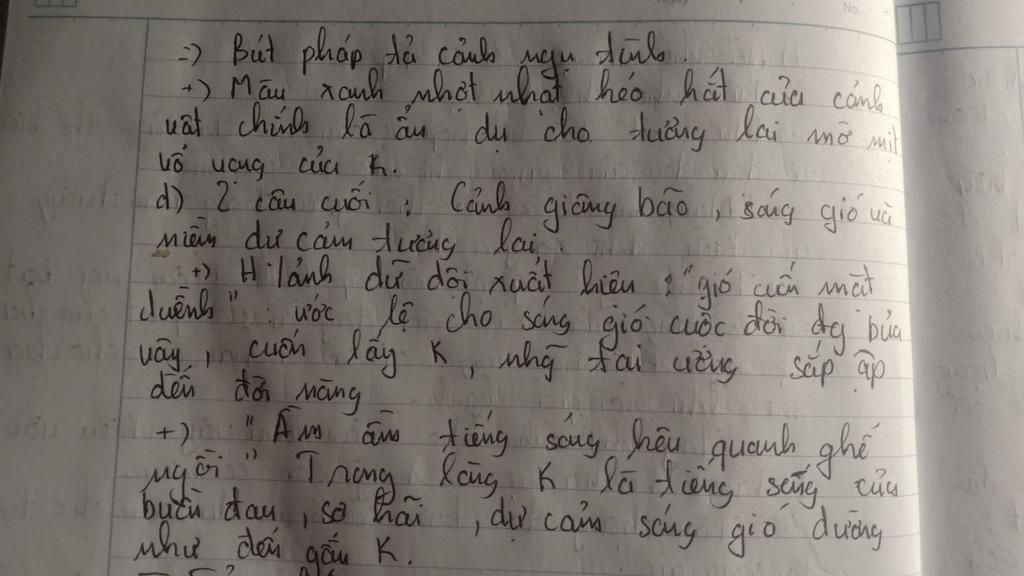 =) Bút pháp tả cảnh ngụ tình.
+) Màu xanh nhợt nhạt héo hắt của cảnh
vật chính là ẩn dụ cho tương lai mờ mịt
vô vọng của K.
d) 2 câu cuối : Cảnh giông bão, sóng gió và
niềm dự cảm tương lai.
+) H.ảnh dữ dội xuất hiện : "gió cuốn mặt
duềnh" : ước lệ cho sóng gió cuộc đời đg bủa
vây, cuốn lấy K, nhg tai ương sắp ập
đến đời nàng
+) "Ầm ầm tiếng sóng kêu quanh ghế
ngồi" Trong lòng K là tiếng sóng của
buồn đau, sợ hãi, dự cảm sóng gió dường
như đến gần K.